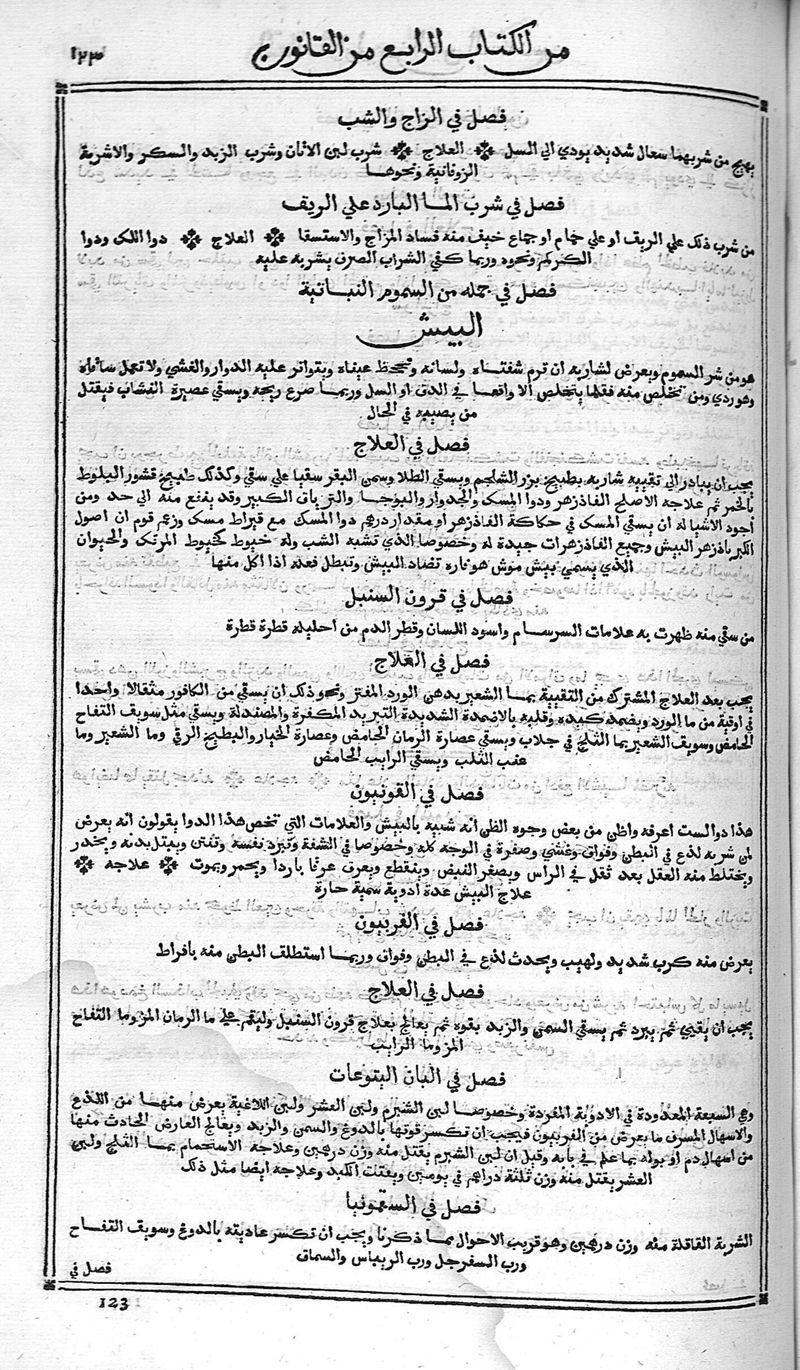 من الكتاب الرابع من القانون
١٢٣
فصل في الزاج والشب
يهيج من شربهما سعال شديد يودي الي السل العلاج شرب لبن الاتان وشرب الزبد والسكر والاشربة
الزوفائية ونحوها
فصل في شرب الما البارد علي الريف
من شرب ذلك علي الريف او علي حمام او جماع خيف منه فساد المزاج والاستسقا العلاج دوا اللك ودوا
الكركم ونحوه وربما كفي الشراب الصرف يشربه عليه
فصل في جمله من السموم النباتية
البيش
هو من شر السموم ويعرض لشاربه ان ترم شفتاه ولسانه وتجحظ عيناه ويتواتر عليه الدوار والغشي ولا تحمل ساقاه
وهو ردي ومن تخلص منه فقلما يتخلص الا واقعا في الدق او السل وربما صرع ريحه ويسقي عصيرة النشاب فيقتل
من يصيبه في الحال
فصل في العلاج
يجب ان يبادر الي تقييه شاربه بطبيخ بزر الشلجم ويسقي الطلا وسمن البقر سقيا علي سقي وكذلك طبيخ قشور البلوط
بالخمر ثم علاجه الاصلح الفادزهر ودوا المسك والجدوار والبوحا والترياق الكبير وقد ينفع منه الي حد ومن
اجود الاشيا له ان يسقي المسك في حكاكة الفادزهر او مقدار درهم دوا المسك مع قيراط مسك وزعم قوم ان اصول
الكبر بادزهر البيش وجميع الفادزهرات جيدة له وخصوصا الذي تشبه الشب وله خيوط كخيوط المرتك والحيوان
الذي يسمي بيش موش هو فاره تضاد البيش وتبطل فعله اذا اكل منها
فصل في قرون السنبل
من سقي منه ظهرت به علامات السرسام واسود اللسان وقطر الدم من احليله قطرة قطرة
فصل في العلاج
يجب بعد العلاج المشترك من التقيية بما الشعير بدهن الورد المفتر ونحو ذلك ان يسقي من الكافور مثقالا واحدا
في اوقية من ما الورد ويضمد كبده وقلبه بالاضمدة الشديدة التبريد المكفرة والمصندلة ويسقي مثل سويف التفاح
الحامض وسويف الشعير بما الثلج في جلاب ويسقي عصارة الرمان الحامض وعصارة الخيار والبطيخ الرقي وما الشعير وما
عنب الثلب ويسقي الرايب الحامض
فصل في القونيون
هذا دوا لست اعرفه واظن من بعض وجوه الظن أنه شبيه بالبيش والعلامات التي تخص هذا الدوا يقولون انه يعرض
لمن شربه لذع في البطن وفواق وغشي وصفرة في الوجه كله وخصوصا في الشفة وتبرد نفسه وتنتن ويبتل بدنه ويخدر
ويختلط منه العقل بعد ثقل في الراس ويصغر النبض وينقطع ويعرق عرقا باردا ويحمر ويموت علاجه
علاج البيش عدة ادوية سمية حارة
فصل في الفربيون
يعرض منه كرب شديد ولهيب ويحدث لذع في البطن وفواق وربما استطلق البطن منه بافراط
فصل في العلاج
يجب ان يقيي ثم يبرد ثم يسقي السمن والزبد بقوه ثم يعالج بعلاج قرون السنبل وليقم علي ما الرمان المز وما التفاح
المز وما الرايب
فصل في البان اليتوعات
وهي السبعة المعدودة في الادوية المفردة وخصوصا لبن الشبرم ولبن العشر ولبن اللاغية يعرض منها من اللذع
والاسهال المسرف ما يعرض من الفربيون فيجب ان تكسر قوتها بالدوغ والسمن والزبد ويعالج العارض الحادث منها
من اسهال دم او بوله بما علم في بابه وقيل ان لبن الشبرم يقتل منه وزن درهمين وعلاجه الاستحمام بما الثلج ولبن
العشر يقتل منه وزن ثلثة دراهم في يومين ويفتت الكبد وعلاجه ايضا مثل ذلك
فصل في السقمونيا
الشربة القاتلة منه وزن درهمين وهو قريب الاحوال مما ذكرنا ويجب ان تكسر عاديته بالدوغ وسويف التفاح
ورب السفرجل ورب الريباس والسماق
فصل في
123